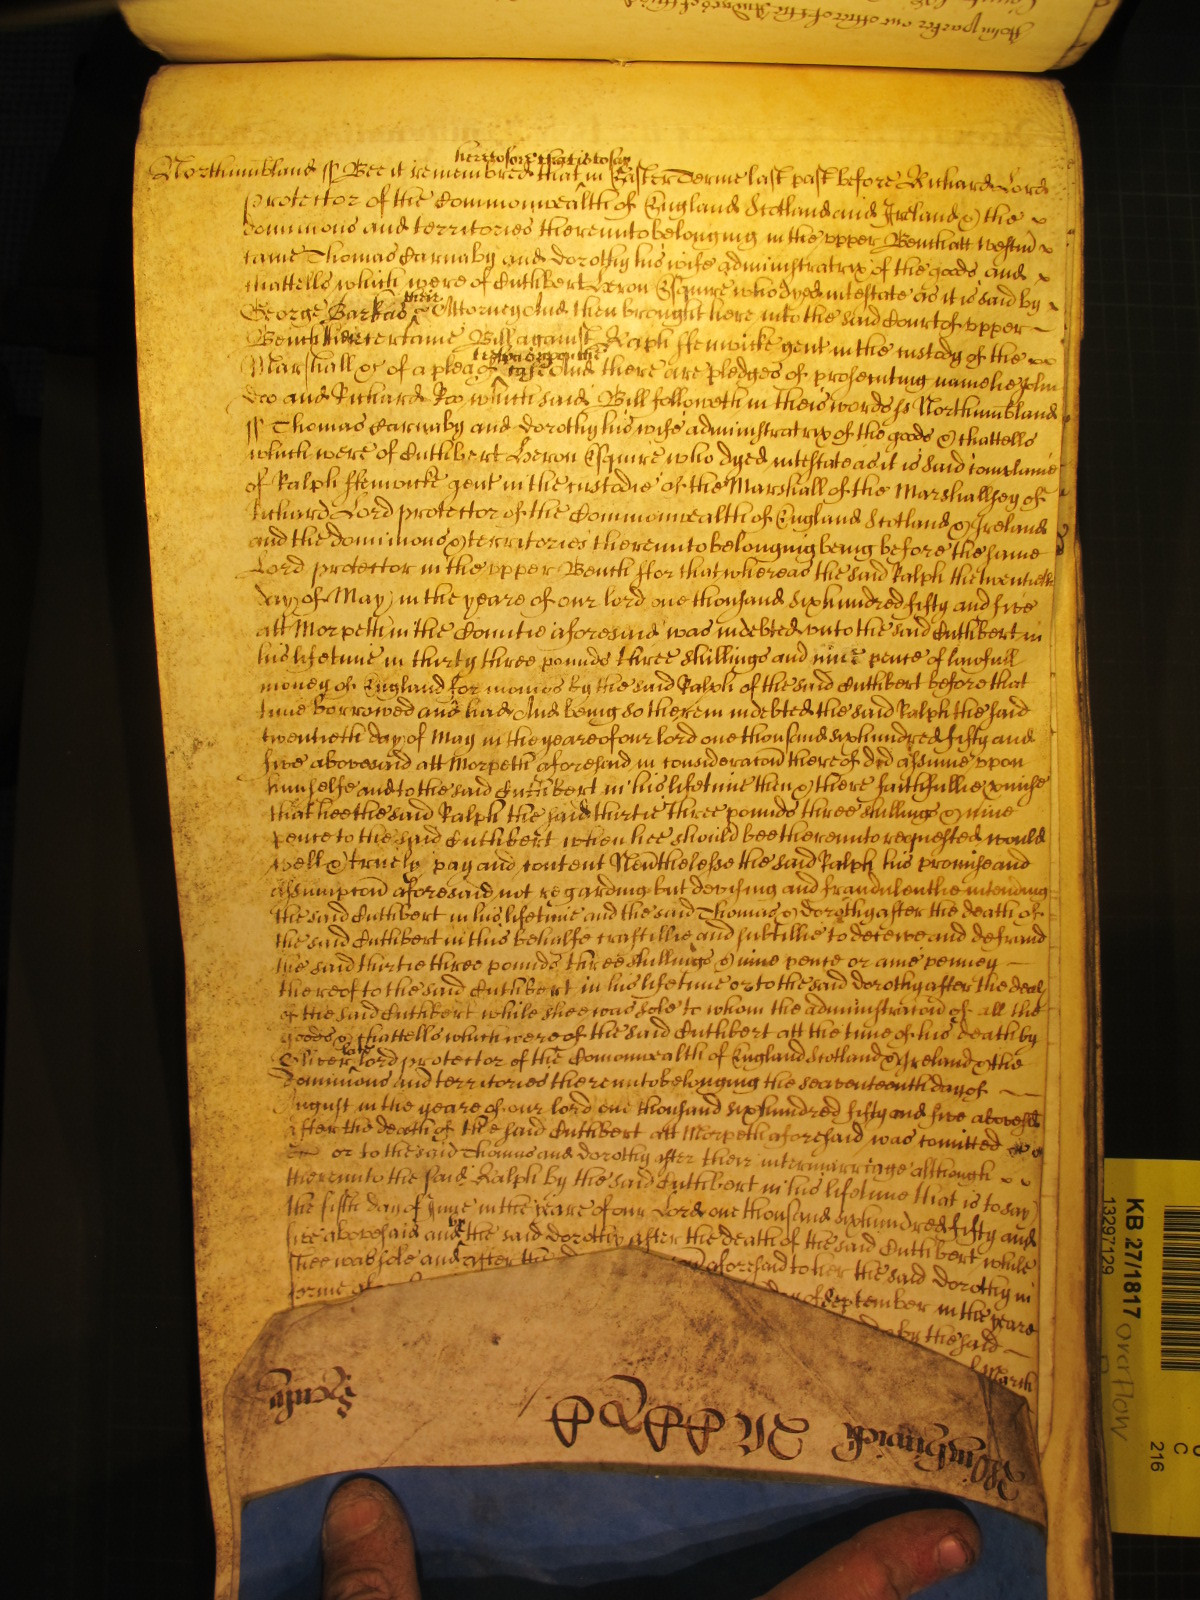 heretofore that is to say
Northumbland ss Bee it remembred that in Easter Terme last past before Richard Lord
protector of the Commonwealth of England Scotland and Ireland & the
dominions and territories thereunto belonging in the upper Bench att Westm
came Thomas Carnaby and Dorothy his wife administratrix of the goods and
chattells which were of Cuthbert Heron Esquire who dyed intestate as it is said by
George Barkas their Attorney And then brought here into the said Court of upper
Bench then certaine Bill against Ralph ffenwicke gent in the custody of the
trespas upon the
Marshall &c of a plea of case And there are pledges of prosecuting namelie John
Doe and Richard Roo which said Bill followeth in theis words ss Northumbland
ss Thomas Carnaby and Dorothy his wife administratrix of the goods & chattells
which were of Cuthbert Heron Esquire who dyed intestate as it is said complaine
of Ralph ffenwicke gent in the custodie of the Marshall of the Marshallsey of
Richard Lord protector of the Commonwealth of England Scotland & Ireland
and the dominions & territories thereunto belonging being before the same
Lord protector in the upper Bench ffor that whereas the said Ralph the twentieth
day of May in the yeare of our lord one thousand six hundred fifty and five
att Morpeth in the Countie aforesaid was indebted unto the said Cuthbert in
his lifetime in thirty three pounds three shillings and nine pence of lawfull
money of England for monies by the said Ralph of the said Cuthbert before that
time borrowed and had And being so therein indebted the said Ralph the said
twentieth day of May in the yeare of our lord one thousand six hundred fifty and
five abovesaid att Morpeth aforesaid in consideracon thereof did assume upon
himselfe and to the said Cuthbert in his lifetime then & there faithfullie promise
that hee the said Ralph the said thirtie three pounds three shillings & nine
pence to the said Cuthbert when hee should bee thereunto requested would
well & truely pay and content Nevthelesse the said Ralph his promise and
assumpcon aforesaid not regarding but devising and fraudulentlie intending
the said Cuthbert in his lifetime and the said Thomas & Dorothy after the death of
the said Cuthbert in this behalfe craftillie and subtillie to deceive and defraud
the said thirtie three pounds three shillings & nine pence or anie penney
thereof to the said Cuthbert in his lifetime or to the said Dorothy after the death
of the said Cuthbert while shee was sole to whom the administracon of all the
goods & chattells which were of the said Cuthbert att the time of his death by
Oliver late lord protector of the Comonwealth of England Scotland & Ireland & the
dominions and territories thereunto belonging the seaventeenth day of
August in the yeare of our lord one thousand six hundred fifty and five abovesd
after the death of the said Cuthbert att Morpeth aforesaid was comitted
or to the said Thomas and Dorothy after their intermarriage although
thereunto the said Ralph by the said Cuthbert in his lifetime that is to say
the fifth day of June in the yeare of our Lord one thousand six hundred fifty and
five abovesaid and by the said Dorothy after the death of the said Cuthbert while
shee was sole and after the aforesaid to her the said Dorothy in
forme day of September in the yeare
by the said
Warth
Hendy
KB 27/1817
13297129
overflow
C
216